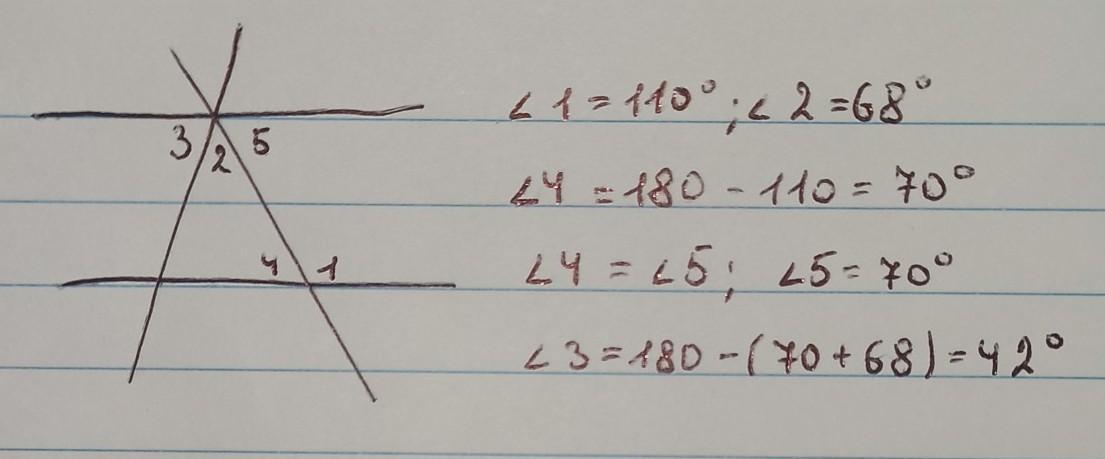 3 2 5
∠1 = 110°; ∠2 = 68°
∠4 = 180 - 110 = 70°
4 1
∠4 = ∠5; ∠5 = 70°
∠3 = 180 - (70 + 68) = 42°